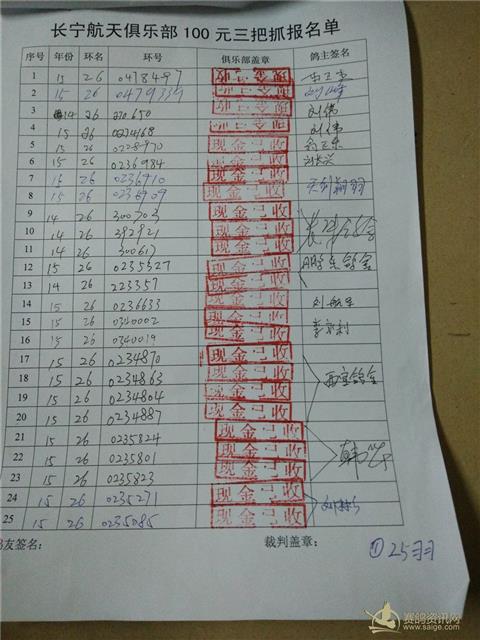 长宁航天俱乐部100元三把抓报名单
序号 年份 环名 环号 俱乐部盖章 鸽主签名
1 15 26 0478497
2 15 26 0479339
3 14 26 现金已收 刘伟
4 15 26 现金已收 刘伟
5 15 26 0228970 现金已收
6 15 26 0236984 现金已收
7 15 26 0236910 现金已收
8 15 26 0236909 现金已收
9 14 26 300703 现金已收
10 14 26 292921 现金已收
11 14 26 300617 现金已收
12 15 26 0235327 现金已收
13 14 26 223357 现金已收
14 15 26 0236633 现金已收
15 15 26 0340002 现金已收
16 15 26 0340019 现金已收
17 15 26 0234870 现金已收
18 15 26 0234863 现金已收
19 15 26 0234804 现金已收
20 15 26 0234887 现金已收
21 15 26 0235824 现金已收
22 15 26 0235801 现金已收
23 15 26 0235823 现金已收
24 15 26 0235271 现金已收
25 15 26 0235085 现金已收
友签名： 裁判盖章： ① 25羽
赛鸽资讯网
www.saige.com